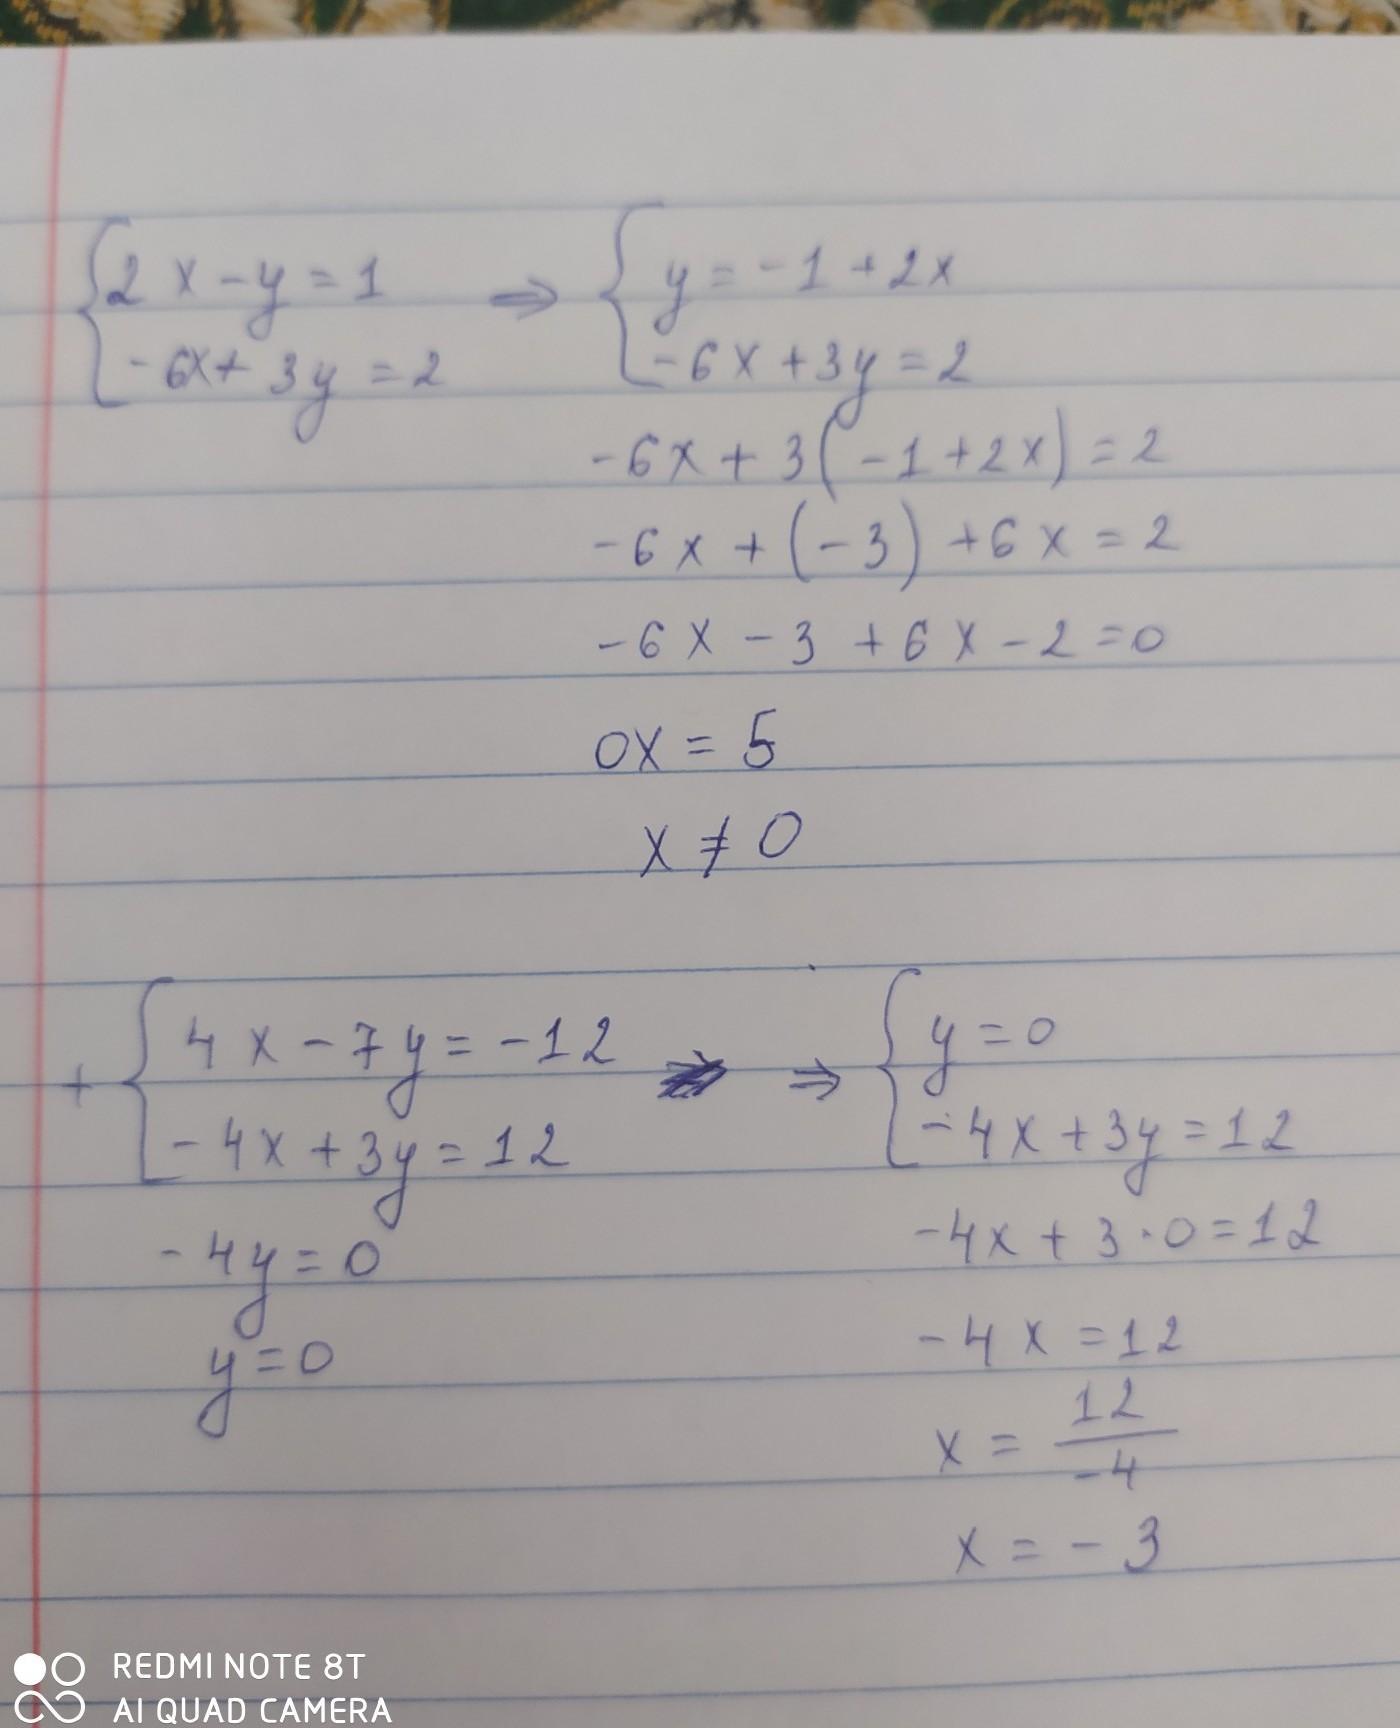 {2x-y=1 ⇒ {y=-1+2x
-6x+3y=2 -6x+3y=2
-6x+3(-1+2x)=2
-6x+(-3)+6x=2
-6x-3+6x-2=0
0x=5
x≠0
+ {4x-7y=-12 ⇒ {y=0
-4x+3y=12 -4x+3y=12
-4y=0 -4x+3·0=12
y=0 -4x=12
x=12/-4
x=-3
REDMI NOTE 8T
AI QUAD CAMERA